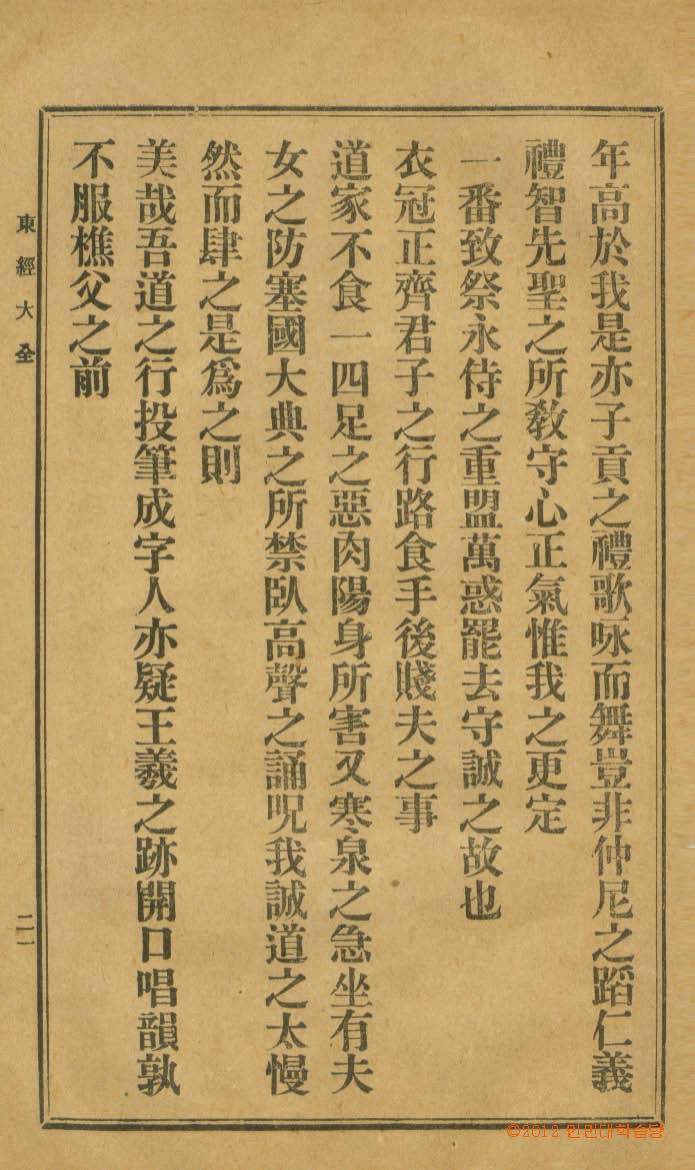 年高於我是亦子貢之禮歌咏而舞豈非仲尼之蹈仁義
禮智先聖之所敎守心正氣惟我之更定
一番致祭永侍之重盟萬惑罷去守誠之故也
衣冠正齊君子之行路食手後賤夫之事
道家不食一四足之惡肉陽身所害又寒泉之急坐有夫
女之防塞國大典之所禁臥高聲之誦呪我誠道之太慢
然而肆之是爲之則
美哉吾道之行投筆成字人亦疑王羲之跡開口唱韻孰
不服樵父之前
東經大全
二一
©2012 인민대학습당